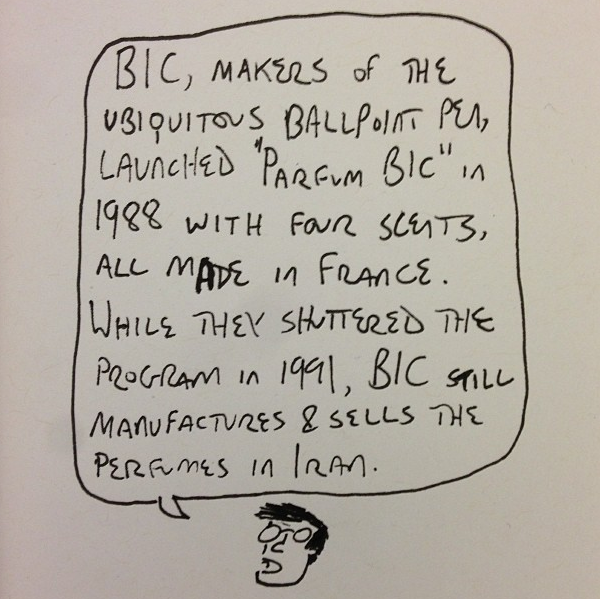 BIC, MAKERS OF THE
UBIQUITOUS BALLPOINT PEN,
LAUNCHED "PARFUM BIC" IN
1988 WITH FOUR SCENTS,
ALL MADE IN FRANCE.
WHILE THEY SHUTTERED THE
PROGRAM IN 1991, BIC STILL
MANUFACTURES & SELLS THE
PERFUMES IN IRAN.